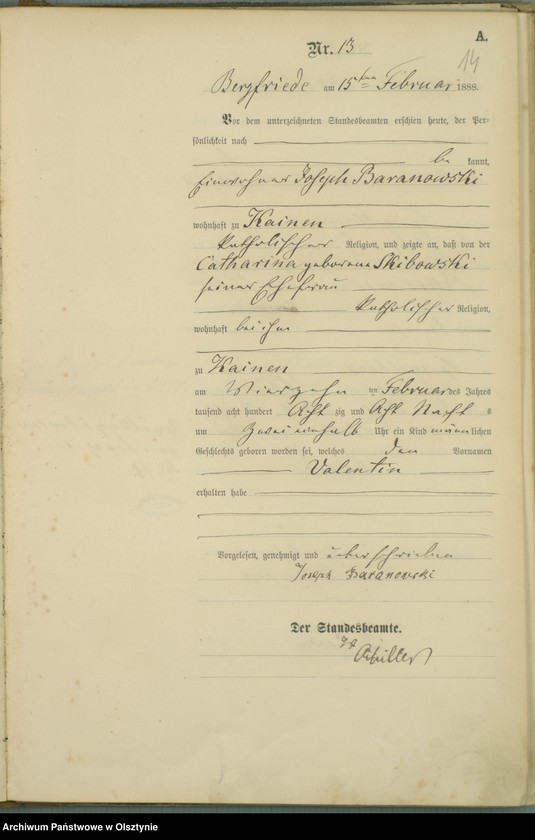 A.
Nr. 13
14
Bergfriede am 15ten Februar 1888.
Vor dem unterzeichneten Standesbeamten erschien heute, der Per-
sönlichkeit nach
be kannt,
Einwohner Joseph Baranowski
wohnhaft zu Kainen
katholischer Religion, und zeigte an, daß von der
Catharina geborene Skibowski
seiner Ehefrau
katholischer Religion,
wohnhaft bei ihm
zu Kainen
am Vierzehn ten Februar des Jahres
tausend acht hundert Acht zig und Acht Nacht s
um zwei einhalb Uhr ein Kind männlichen
Geschlechts geboren worden sei, welches den Vornamen
Valentin
erhalten habe
Vorgelesen, genehmigt und unterschrieben
Joseph Baranowski
Der Standesbeamte.